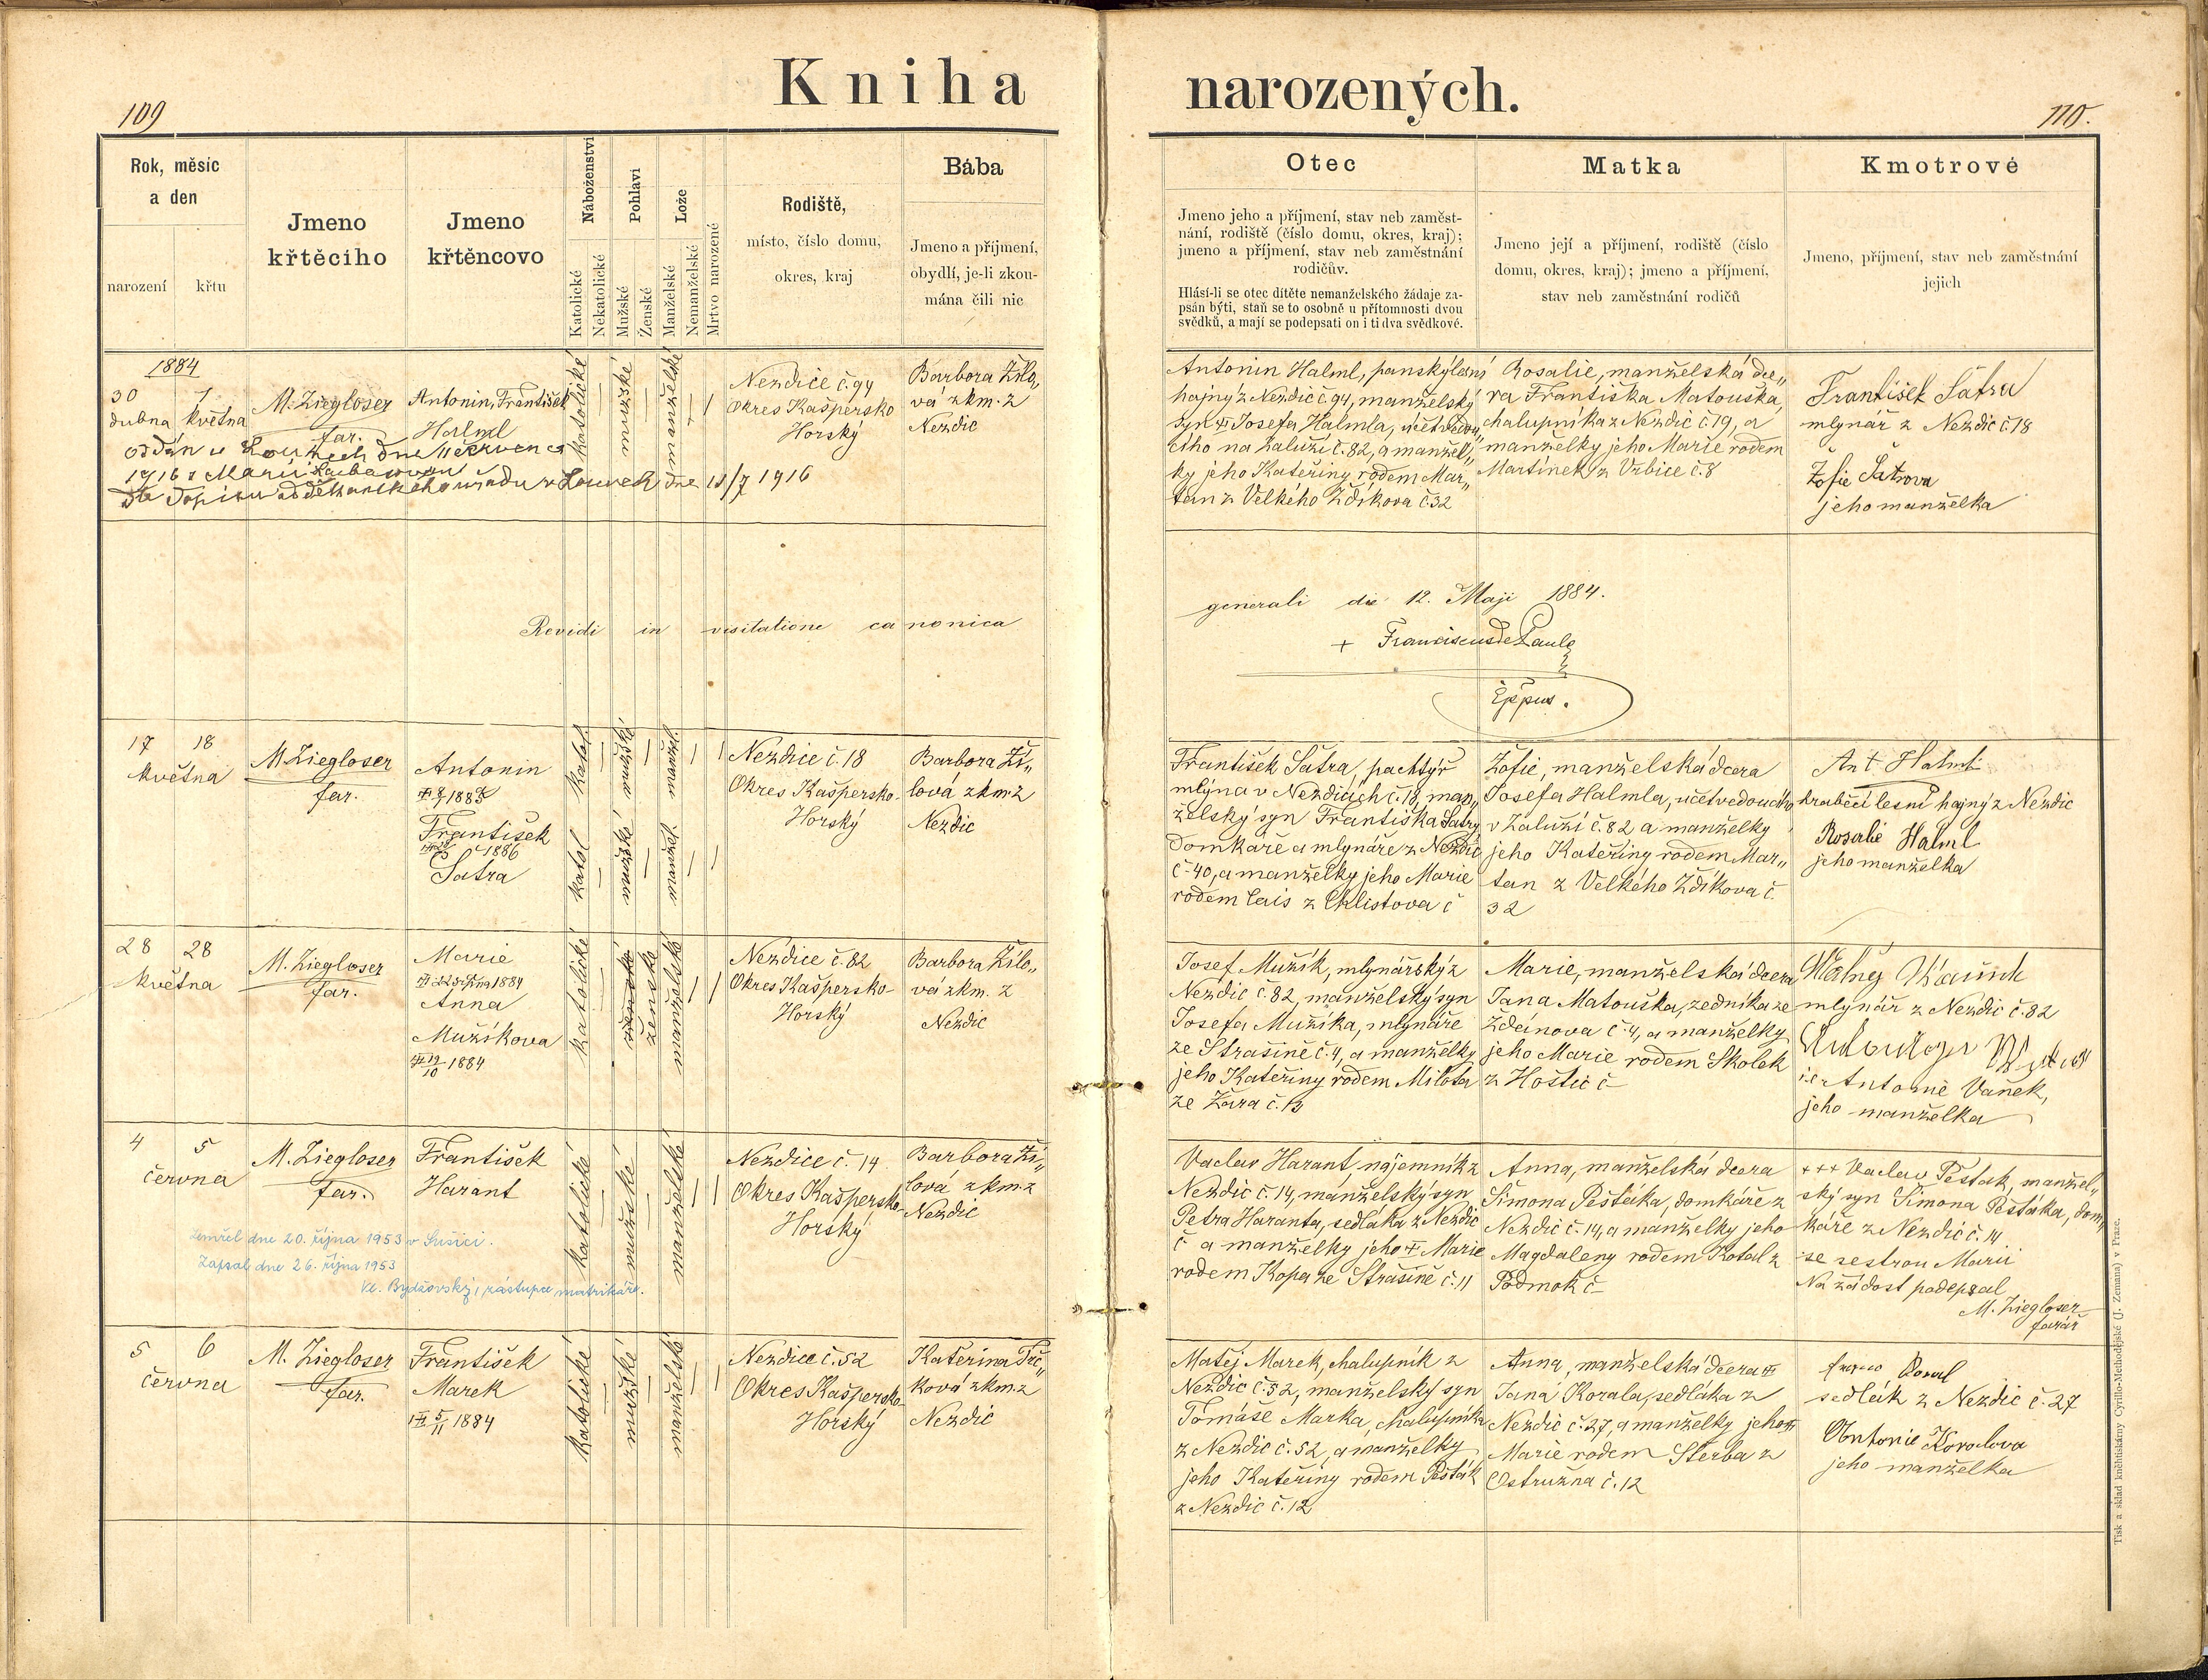 Kniha narozených.
109
110.
Rok, měsíc
a den
narození
křtu
Jmeno
křtěcího
Jmeno
křtěncovo
Náboženství
Katolické
Nekatolické
Pohlaví
Mužské
Ženské
Lože
Manželské
Nemanželské
Mrtvo narozené
Rodiště,
místo, číslo domu,
okres, kraj
Bába
Jmeno a příjmení,
obydlí, je-li zkou-
mána čili nic
Otec
Jmeno jeho a příjmení, stav neb zaměst-
nání, rodiště (číslo domu, okres, kraj);
jmeno a příjmení, stav neb zaměstnání
rodičův.
Hlásí-li se otec dítěte nemanželského žádaje za-
psán býti, staň se to osobně u přítomnosti dvou
svědků, a mají se podepsati on i ti dva svědkové.
Matka
Jmeno její a příjmení, rodiště (číslo
domu, okres, kraj); jmeno a příjmení,
stav neb zaměstnání rodičů
Kmotrové
Jmeno, příjmení, stav neb zaměstnání
jejich
1884
30 1
dubna května
M. Ziegloser
far.
Antonin, František
Halml
katolické
mužské
manželské
Nezdice č. 94
Okres Kašpersko
Horský
Barbora Žilo„
vá zkm. z
Nezdic
oddán v Lounech dne 11 července
1916 s Marií
dle dopisu od děkanského úřadu v Lounech dne 11/7 1916
Antonin Halml, panský lesní
hajný z Nezdic č. 94, manželský
syn Josefa Halmla, účetvedou„
cího na Zaluží č. 82, a manžel„
ky jeho Kateřiny rodem Mar„
tan z Velkého Ždíkova č. 32
Rosalie, manželská dce„
ra Františka Matouška,
chalupníka z Nezdic č. 19, a
manželky jeho Marie rodem
Martínek z Vrbice č. 8
František Šatra
mlynář z Nezdic č. 18
Žofie Šatrova
jeho manželka
Revidi in visitatione canonica
generali die 12. Maji 1884.
+ Franciscus de Paula
Eppus.
17 18
května
M. Ziegloser
far.
Antonin
František
1886
Šatra
katol.
mužské
manžel.
katol
mužské
manžel.
Nezdice č. 18
Okres Kašpersko-
Horský
Barbora Ži„
lová zkm. z
Nezdic
František Šatra, pachtýř
mlýna v Nezdicích č. 18, man„
želský syn Františka Šatry
domkáře a mlynáře z Nezdic
č. 40, a manželky jeho Marie
rodem Cais z Chlistova č
Žofie, manželská dcera
Josefa Halmla, účetvedoucího
v Zaluží č. 82 a manželky
jeho Kateřiny rodem Mar„
tan z Velkého Ždíkova č.
32
Ant Halml
hraběcí lesní hajný z Nezdic
Rosalie Halml
jeho manželka
28 28
května
M. Ziegloser
far.
Marie
1884
Anna
Mužíkova
19/10 1884
katolické
ženské
manželské
Nezdice č. 82
Okres Kašpersko-
Horský
Barbora Žilo„
vá zkm. z
Nezdic
Josef Mužík, mlynářský z
Nezdic č. 82, manželský syn
Josefa Mužíka, mlynáře
ze Strašině č. 4, a manželky
jeho Kateřiny rodem Milota
ze Žára č. 13
Marie, manželská dcera
Jana Matouška, zedníka ze
Ždánova č. 4, a manželky
jeho Marie rodem Skolek
z Hoštic č
mlynář z Nezdic č. 82
Antonie Vaněk,
jeho manželka
4 5
června
M. Ziegloser
far.
František
Harant
katolické
mužské
manželské
Nezdice č. 14
Okres Kašpersko-
Horský
Barbora Ži„
lová zkm. z
Nezdic
zemřel dne 20. října 1953 v Sušici.
Zapsal dne 26. října 1953
Vl. Bydžovský, zástupce matrikáře.
Vaclav Harant, nájemník z
Nezdic č. 14, manželský syn
Petra Haranta, sedláka z Nezdic
č a manželky jeho Marie
rodem Kopa ze Strašině č. 11
Anna, manželská dcera
Šimona Pešťáka, domkáře z
Nezdic č. 14, a manželky jeho
Magdaleny rodem Kotal z
Podmok č
+++ Vaclav Pešťák, manžel„
ský syn Šimona Pešťáka, dom„
káře z Nezdic č. 14
se sestrou Marii
Na žádost podepsal
M. Ziegloser
farář
5 6
června
M. Ziegloser
far.
František
Marek
5/11 1884
katolické
mužské
manželské
Nezdice č. 52
Okres Kašpersko-
Horský
Kateřina Trč„
ková zkm. z
Nezdic
Matěj Marek, chalupník z
Nezdic č. 52, manželský syn
Tomáše Marka, chalupníka
z Nezdic č. 52, a manželky
jeho Kateřiny rodem Pešťák
z Nezdic č. 12
Anna, manželská dcera
Jana Korala, sedláka z
Nezdic č. 27, a manželky jeho
Marie rodem Šterba z
Ostružna č. 12
sedlák z Nezdic č. 27
Antonie Koralova
jeho manželka
Tisk a sklad kněhtiskárny Cyrillo-Methodějské (J. Zeman) v Praze.